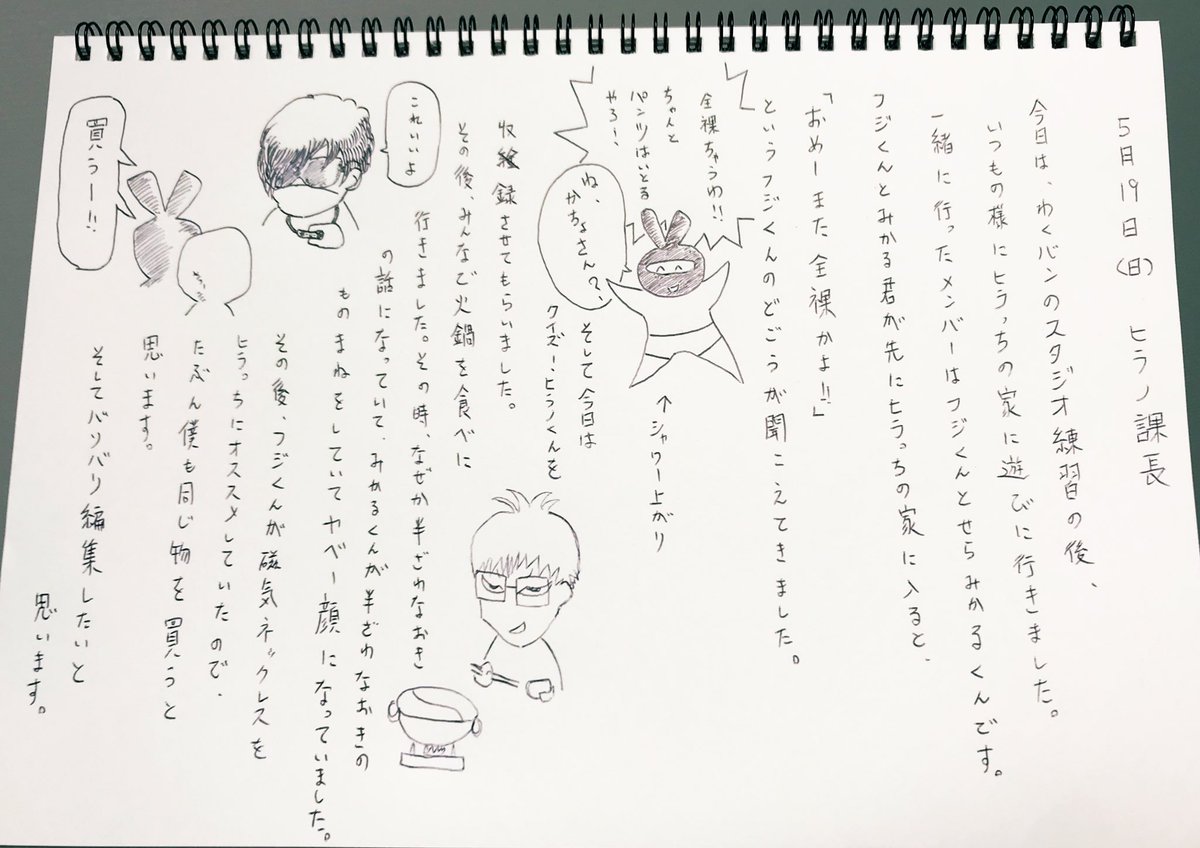 5月19日(日) ヒラノ課長
今日は、わくバンのスタジオ練習の後、
いつも様にヒラっちの家に遊びに行きました。
一緒に行ったメンバーはフジくんとせらみかるくんです。
フジくんとみかる君が先にヒラっちの家に入ると、
「おめーまた全裸かよ!!」
というフジくんのどごうが聞こえてきました。
全裸ちゃうわ!!
ちゃんと
パンツはいとる
やろ!
ね、
かちょさん?、
↑シャワー上がり
そして今日は
クイズ!ヒラノくんを
収録させてもらいました。
その後、みんなで火鍋を食べに
行きました。その時、なぜか半ざわなおき
の話になっていて、みかるくんが半ざわなおきの
ものまねをしていてヤベー顔になっていました。
これいいよ
その後、フジくんが磁気ネックレスを
ヒラっちにオススメしていたので、
たぶん僕も同じ物を買うと
思います。
買うー!!
そしてバリバリ編集したいと
思います。